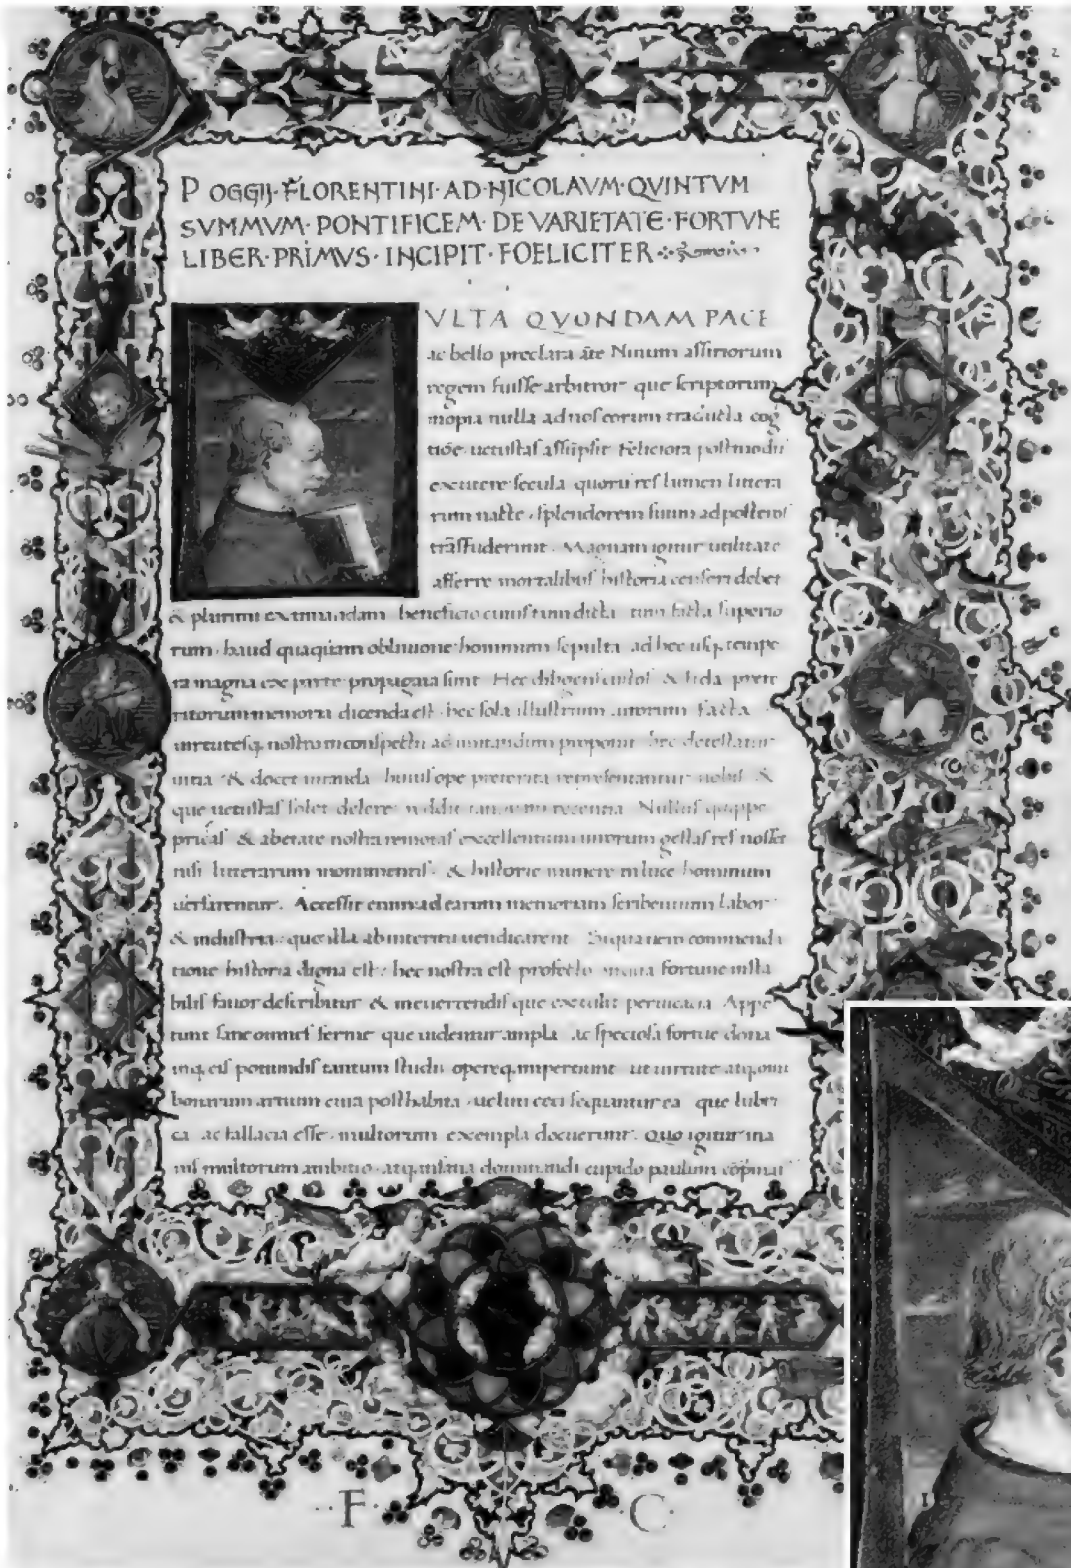 POGGIJ·FLORENTINI·AD·NICOLAVM·QVINTVM
SVMMVM·PONTIFICEM·DE VARIETATE·FORTVNE
LIBER·PRIMVS·INCIPIT·FOELICITER
VLTA QVONDAM PACE
ac bello preclara āte Ninum assiriorum
regem fuisse arbitror que scriptorum
inopia nulla ad nos eorum traducta cog
uetustas Feliciora postmodū
secula res lumen littera
rum nacte splendorem suum ad posteros
trāsfuderunt. Magnam igitur utilitatē
afferre mortalibus historia censeri debet
& plurimi beneficio cuius tum dicta tum facta superio
rum haud quaquam obliuione hominum sepulta ad hec usq tempo
ra magna ex parte propagata sint. Hec & fida prete
ritorum memoria dicenda est hec sola illustrium uirorum facta
uirtutesq nostra in conspectu ad imitandum proponit hec detestatur
uitia & docet uitanda huius ope preterita representantur nobis &
que uetustas solet delere reddit recentia Nullus quippe
priscas & ab etate nostra remotas excellentium uirorum gestas res nosset
nisi litterarum monumentis & historie munere in luce hominum
uersarentur. Accessit enim ad earum memoriam scribentium labor
& industria que illa ab interitu uendicarent Siqua uero commenda
tione historia digna est hec nostra est profecto in qua fortune insta
bilis fauor describitur & in euertendis que extulit peruicacia Appe
tunt sane omnes ferme que uidentur ampla ac speciosa fortūe dona
inq eis potiundis tantum studii opereq impertiunt ut uirtute atq omī
bonarum artium cura posthabita ueluti ceci sequantur ea que lubri
ca ac fallacia esse multorum exempla docuerunt. Quo igitur ina
nis multorum ambitio atq insana dominandi cupido paulum
F· C·